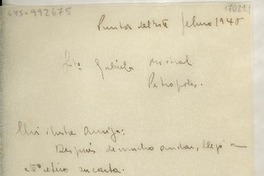 645-992675
Punta del Este febrero 1945
Gabriela Mistral
Petrópolis.
Mi ilustre Amiga:
Después de mucho andar, llegó a
este retiro su carta.